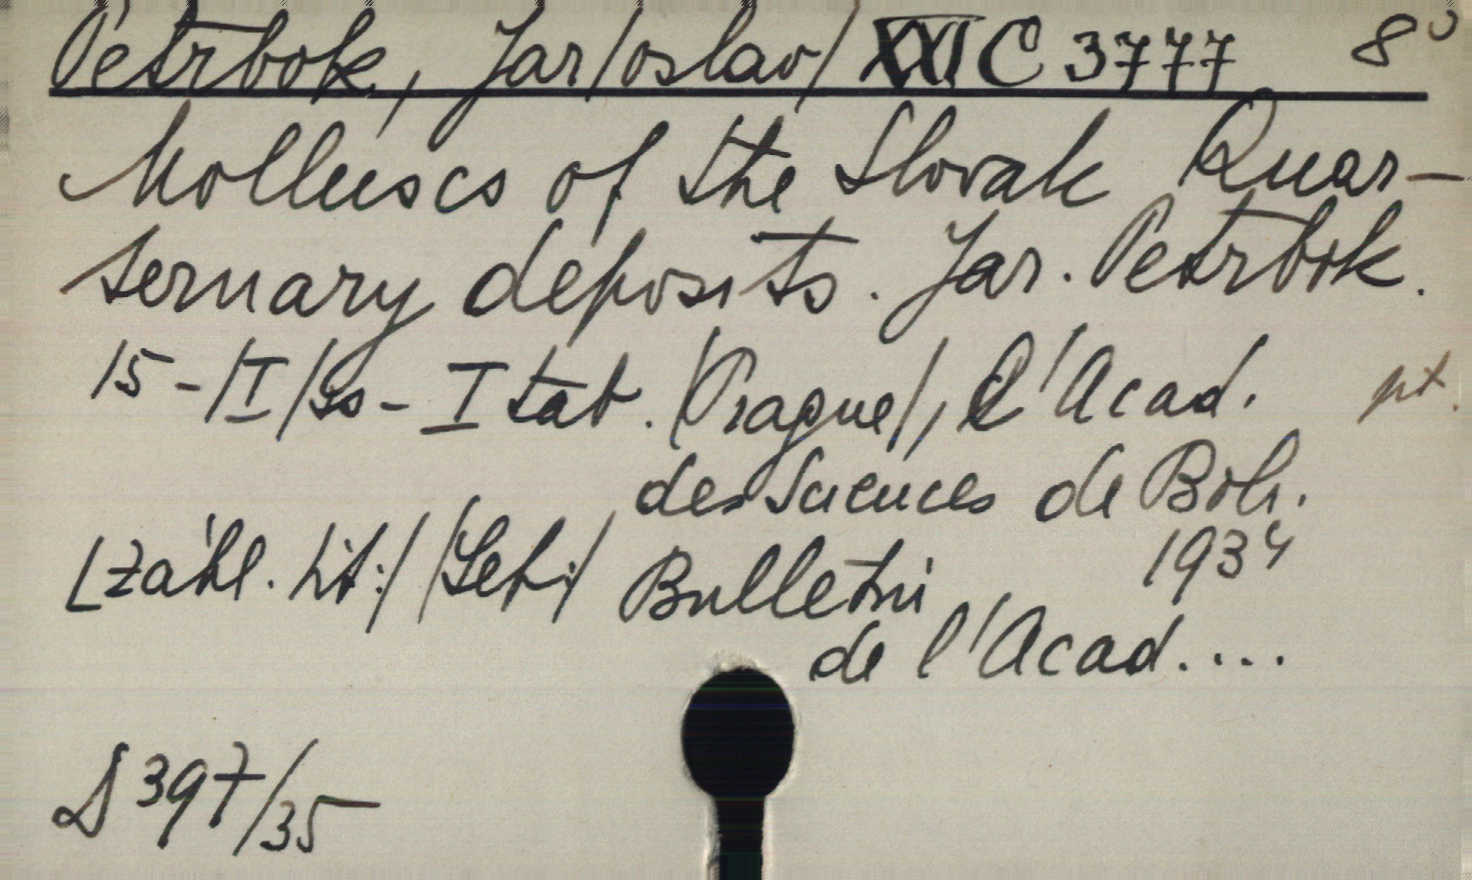 Petrbok, Jar/oslav/ XXI C 3777 8°
Molluscs of the Slovak Quar-
ternary deposits. Jar. Petrbok.
15-/I/ss-I tab. /Prague/, l'Acad. pt.
des Sciences de Boh.
1934
[Záhl. lit:/ /Sep:/ Bulletin
de l'Acad....
397/35